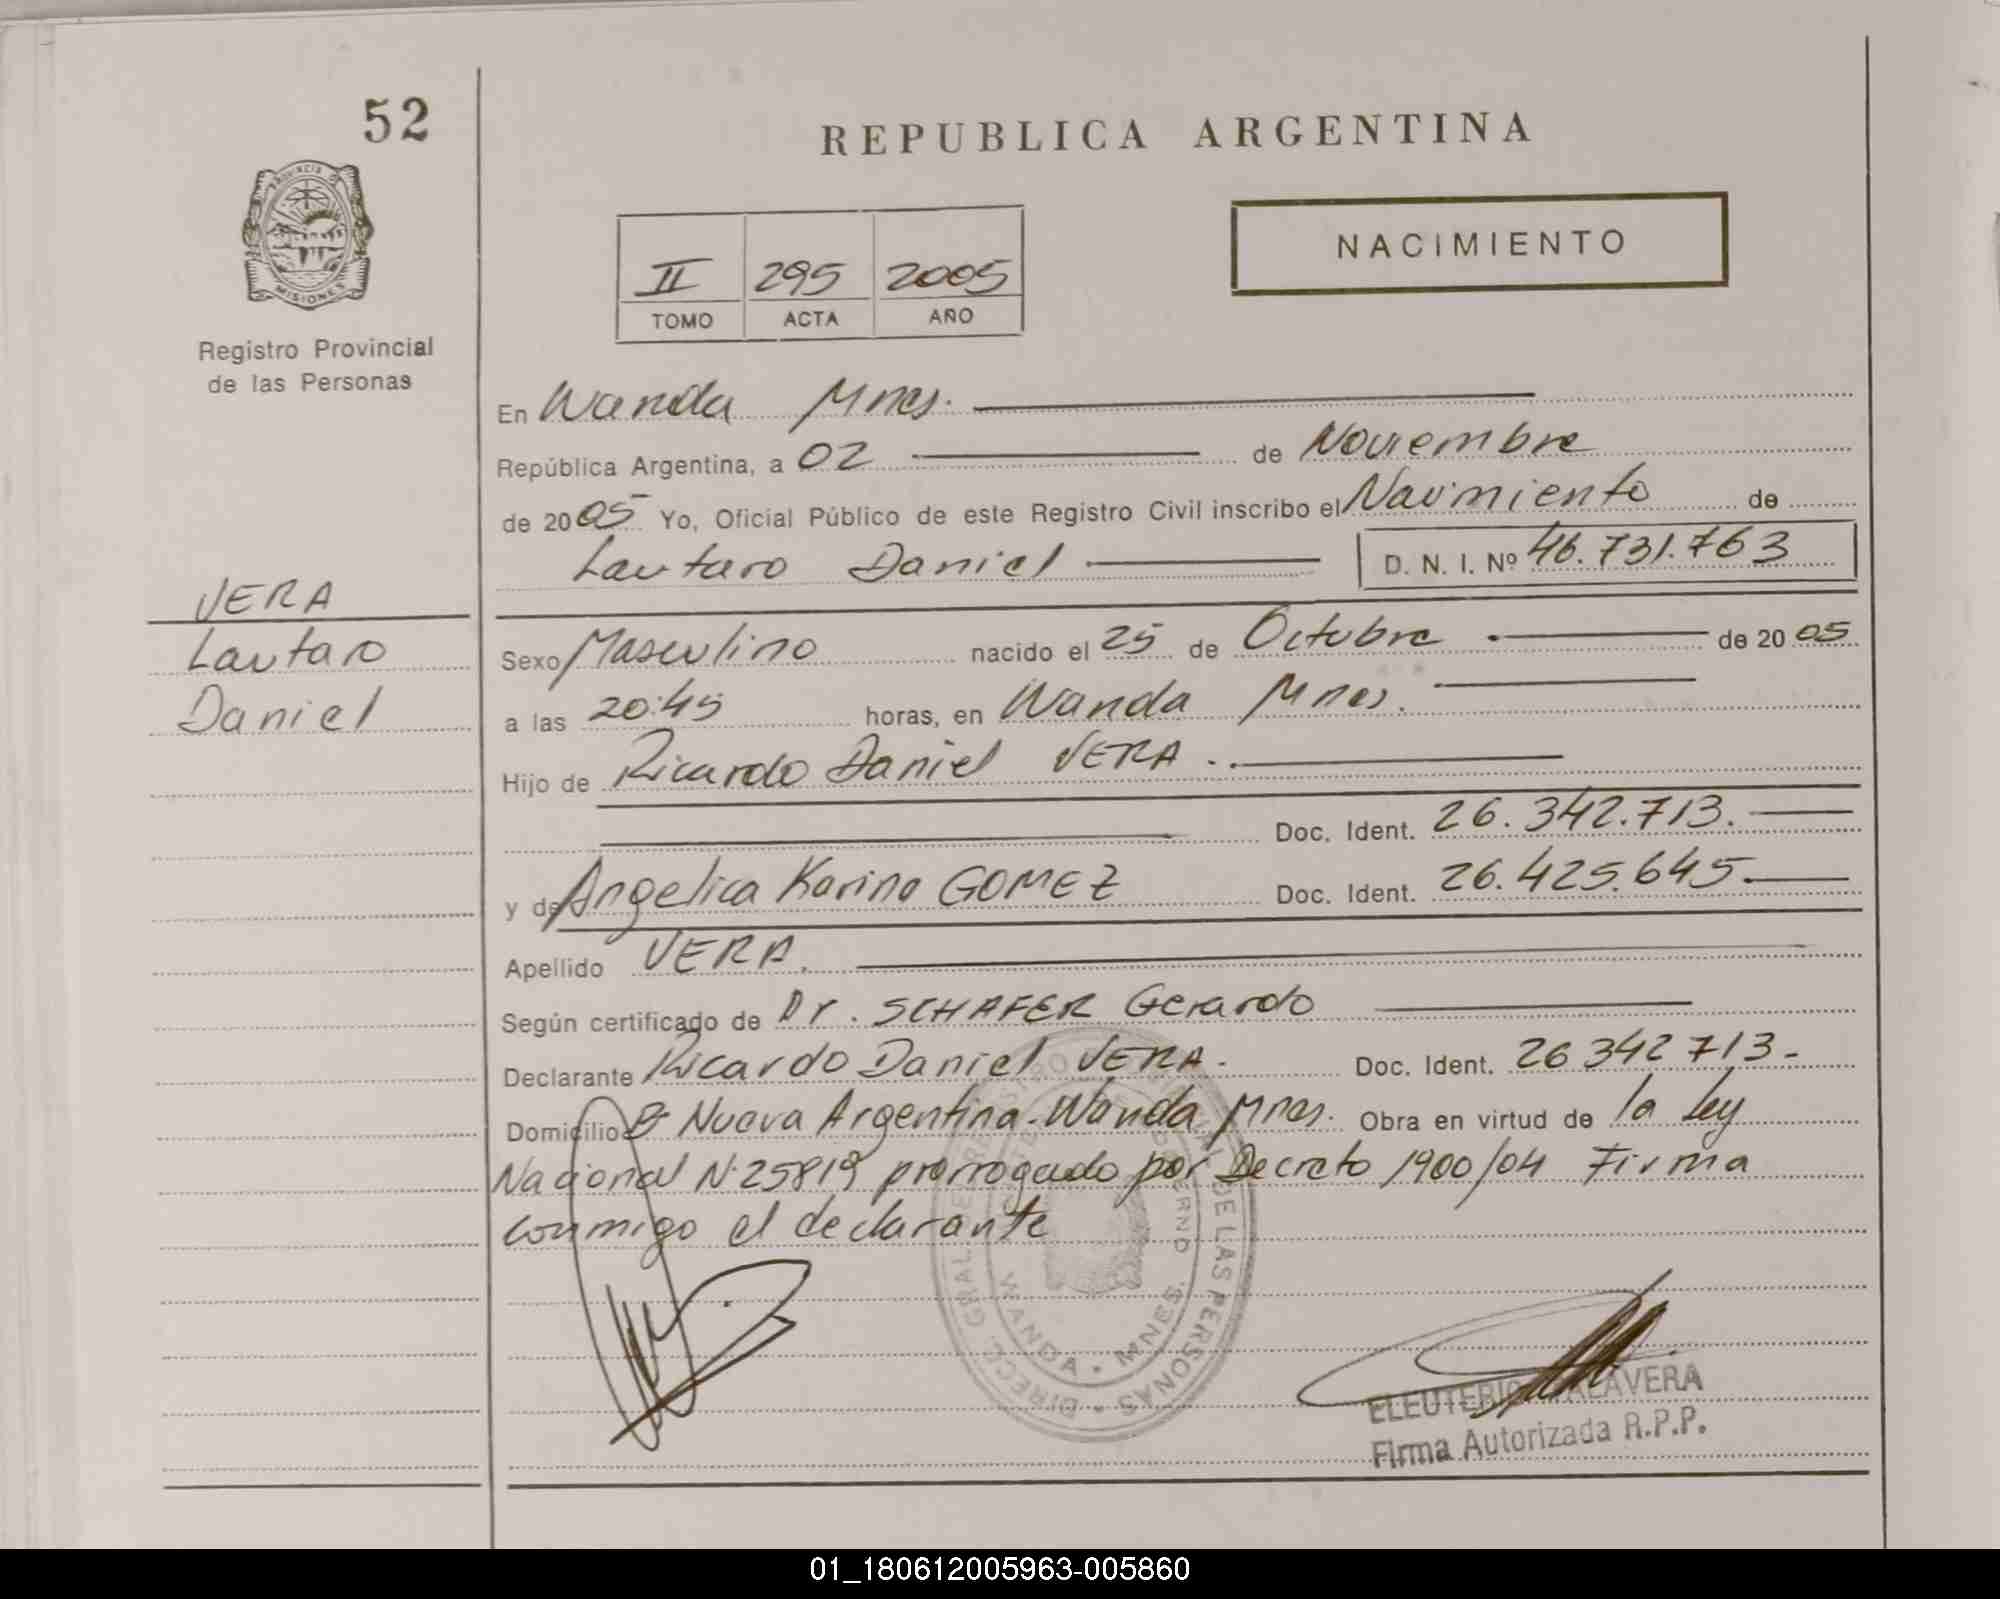 52
REPUBLICA ARGENTINA
PROVINCIA DE
MISIONES
NACIMIENTO
II 295 2005
TOMO ACTA AÑO
Registro Provincial
de las Personas
En Wanda Mnes.
República Argentina, a 02 de Noviembre
de 2005 Yo, Oficial Público de este Registro Civil inscribo el Nacimiento de
Lautaro Daniel D. N. I. Nº 46.731.763
VERA
Lautaro
Daniel
Sexo Masculino nacido el 25 de Octubre de 2005
a las 20:45 horas, en Wanda Mnes.
Hijo de Ricardo Daniel VERA.
Doc. Ident. 26.342.713.
y de Angelica Karina GOMEZ Doc. Ident. 26.425.645.
Apellido VERA.
Según certificado de Dr. SCHAFER Gerardo
Declarante Ricardo Daniel VERA. Doc. Ident. 26 342 713.
Domicilio Bº Nueva Argentina. Wanda Mnes. Obra en virtud de la ley
Nacional Nº 25819 prorrogado por Decreto 1900/04 Firma
conmigo el declarante
DE LAS PERSONAS
WANDA • MNES.
ELEUTERIO TALAVERA
Firma Autorizada R.P.P.
01_180612005963-005860